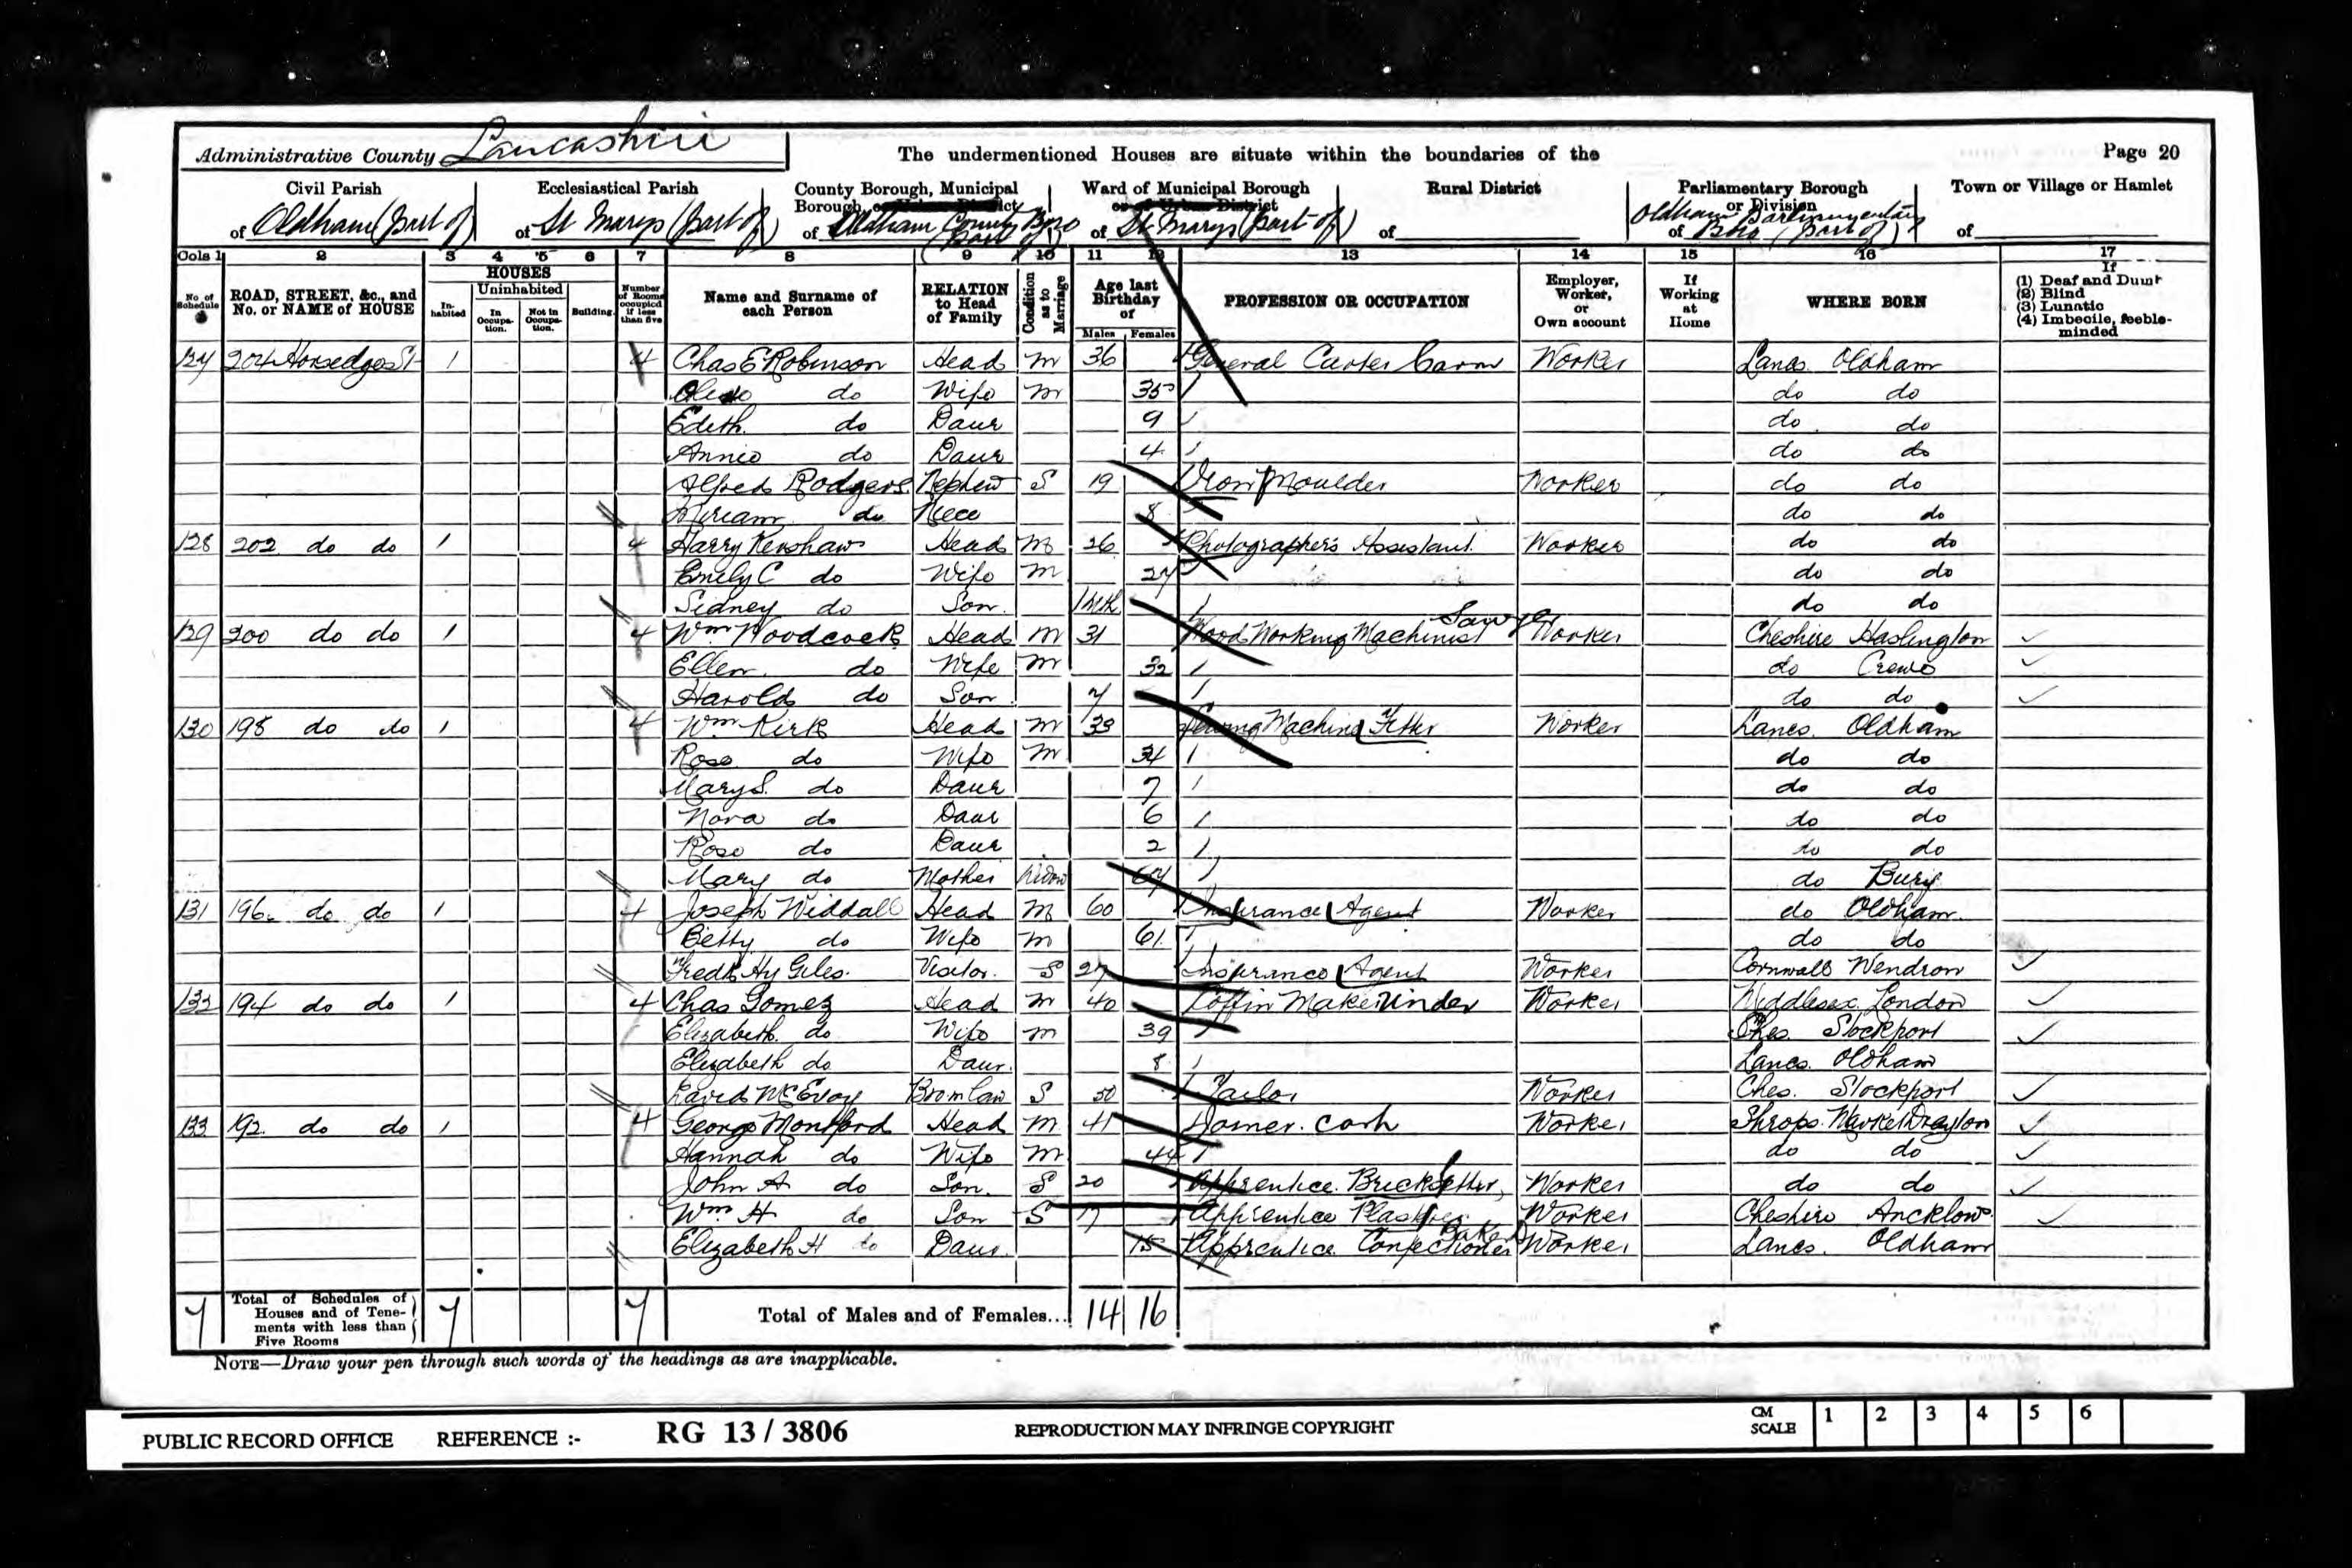 Administrative County Lancashire
The undermentioned Houses are situate within the boundaries of the
Page 20
Civil Parish
of Oldham (Part of)
Ecclesiastical Parish
of St Marys (Part of)
County Borough, Municipal Borough, or Urban District
of Oldham County Boro (Part of)
Ward of Municipal Borough or of Urban District
of St Marys (Part of)
Rural District
of
Parliamentary Borough or Division
of Oldham Parliamentary Boro (Part of)
Town or Village or Hamlet
of
Cols 1 2 3 4 5 6 7 8 9 10 11 12 13 14 15 16 17
No. of Schedule
ROAD, STREET, &c., and No. or NAME of HOUSE
HOUSES
In-habited
Uninhabited
In Occupa-tion.
Not in Occupa-tion.
Building.
Number of Rooms occupied if less than five
Name and Surname of each Person
RELATION to Head of Family
Condition as to Marriage
Age last Birthday of
Males Females
PROFESSION OR OCCUPATION
Employer, Worker, or Own account
If Working at Home
WHERE BORN
If
(1) Deaf and Dumb
(2) Blind
(3) Lunatic
(4) Imbecile, feeble-minded
127 204 Horsedge St 1 4 Chas E Robinson Head M 36 General Carter Worker Lancs. Oldham
do Wife M 35 do do
Edith do Daur 9 do do
Annie do Daur 4 do do
Alfred Rodgers Nephew S 19 Iron Moulder Worker do do
Miriam do Niece 8 do do
128 202 do do 1 4 Harry Renshaw Head M 26 Photographer's Assistant Worker do do
Emily C do Wife M 27 do do
Sidney do Son 1 mth do do
129 200 do do 1 4 Wm Woodcock Head M 31 Wood Working Machinist Sawyer Worker Cheshire Haslington
Ellen do Wife M 32 do Crewe
Harold do Son 7 do do
130 198 do do 1 4 Wm Kirk Head M 33 Sewing Machine Fitter Worker Lancs. Oldham
Rose do Wife M 34 do do
Mary S. do Daur 7 do do
Nora do Daur 6 do do
Rose do Daur 2 do do
Mary do Mother Widow 67 do Bury
131 196 do do 1 4 Joseph Widdall Head M 60 Insurance Agent Worker do Oldham
Betty do Wife M 61 do do
Fredk Hy Giles Visitor S 27 Insurance Agent Worker Cornwall Wendron
132 194 do do 1 4 Chas Gomez Head M 40 Coffin Maker Under Worker Middlesex London
Elizabeth do Wife M 39 Ches. Stockport
Elizabeth do Daur. 8 Lancs. Oldham
David McEvoy Bro in law S 30 Tailor Worker Ches. Stockport
133 192 do do 1 4 George Montford Head M 41 Worker Shrops. Market Drayton
Hannah do Wife M 44 do do
John A do Son S 20 Apprentice Bricksetter Worker do do
Wm H do Son S 17 Apprentice Plasterer Worker Cheshire
Elizabeth H do Daur. 15 Apprentice Confectioner Baker Worker Lancs. Oldham
7 Total of Schedules of Houses and of Tene-ments with less than Five Rooms 7 7 Total of Males and of Females... 14 16
NOTE—Draw your pen through such words of the headings as are inapplicable.
PUBLIC RECORD OFFICE REFERENCE :- RG 13 / 3806 REPRODUCTION MAY INFRINGE COPYRIGHT CM SCALE 1 2 3 4 5 6